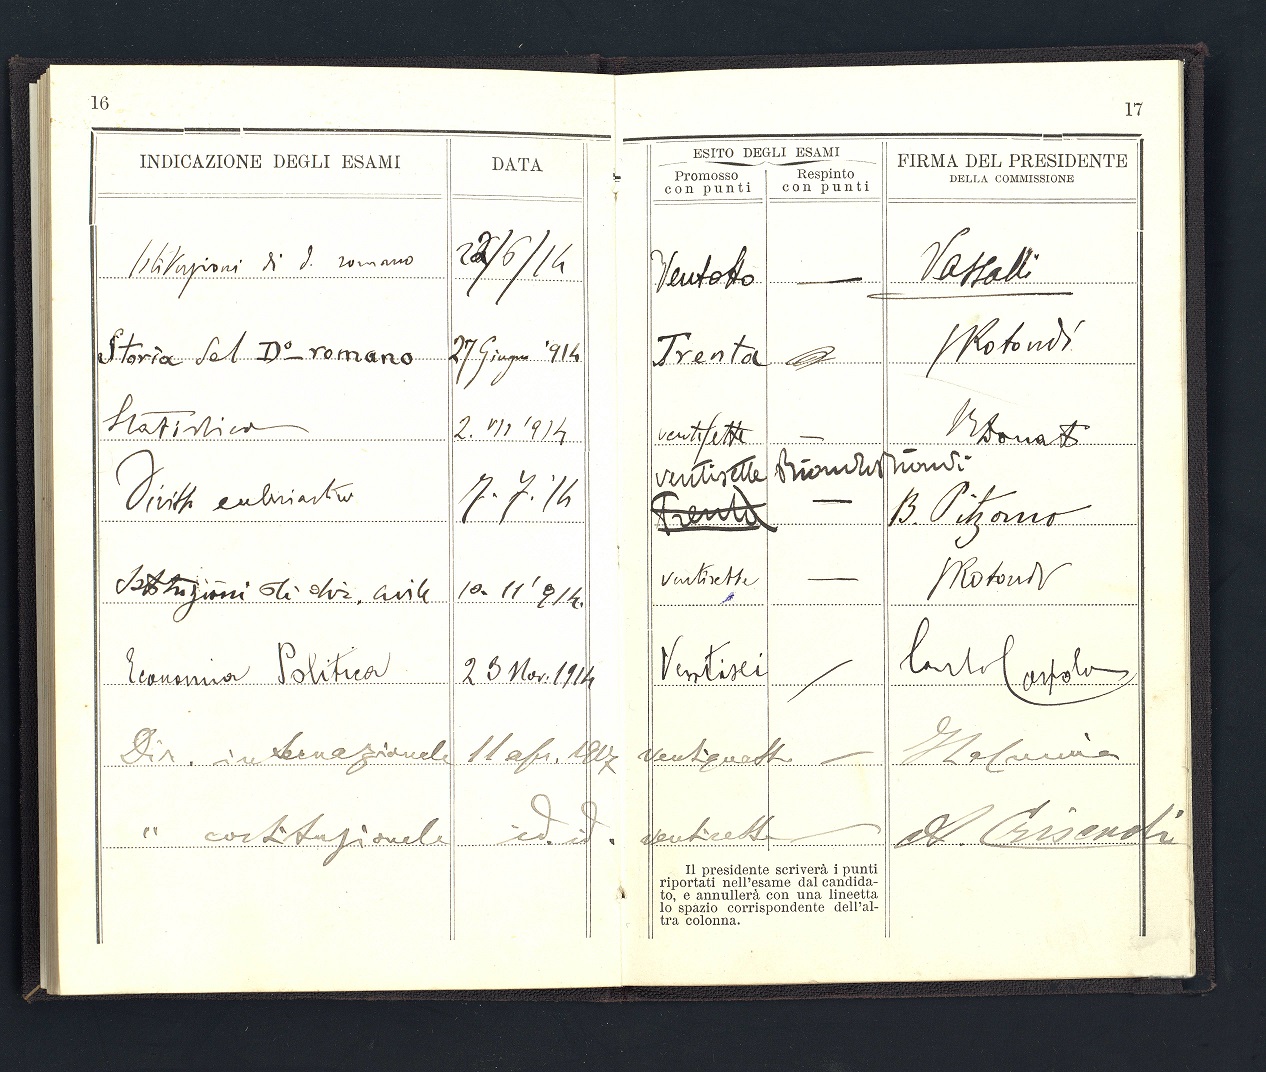 16
17
INDICAZIONE DEGLI ESAMI DATA ESITO DEGLI ESAMI FIRMA DEL PRESIDENTE
DELLA COMMISSIONE
Promosso Respinto
con punti con punti
Istituzioni di d. romano 22/6/14 Ventotto — Vassalli
Storia del Do romano 27 Giugno '914 Trenta Rotondi
Statistica 2. VII '914 ventisette — Donati
ventisette
Diritto ecclesiastico 7. 7. '14 Trenta — B. Pitzorno
Istituzioni di dir. civile 10. 11 '914. ventisette — Rotondi
Economia Politica 23 Nov. 1914 Ventisei
Dir. internazionale 11 apr. 1917 —
" costituzionale id. id. ventisette
Il presidente scriverà i punti
riportati nell'esame dal candida-
to, e annullerà con una lineetta
lo spazio corrispondente dell'al-
tra colonna.